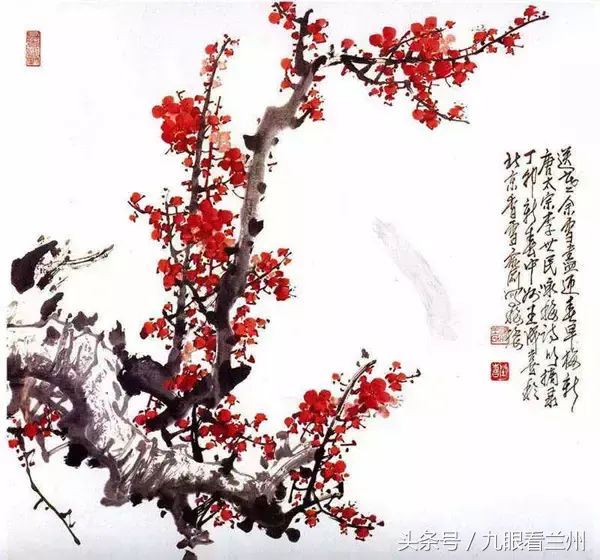 送寒余雪盡迎春早梅新
唐太宗李世民咏梅詩句摘录
丁卯新春中州王成喜於
北京香雪斋
头条号 / 九眼看兰州